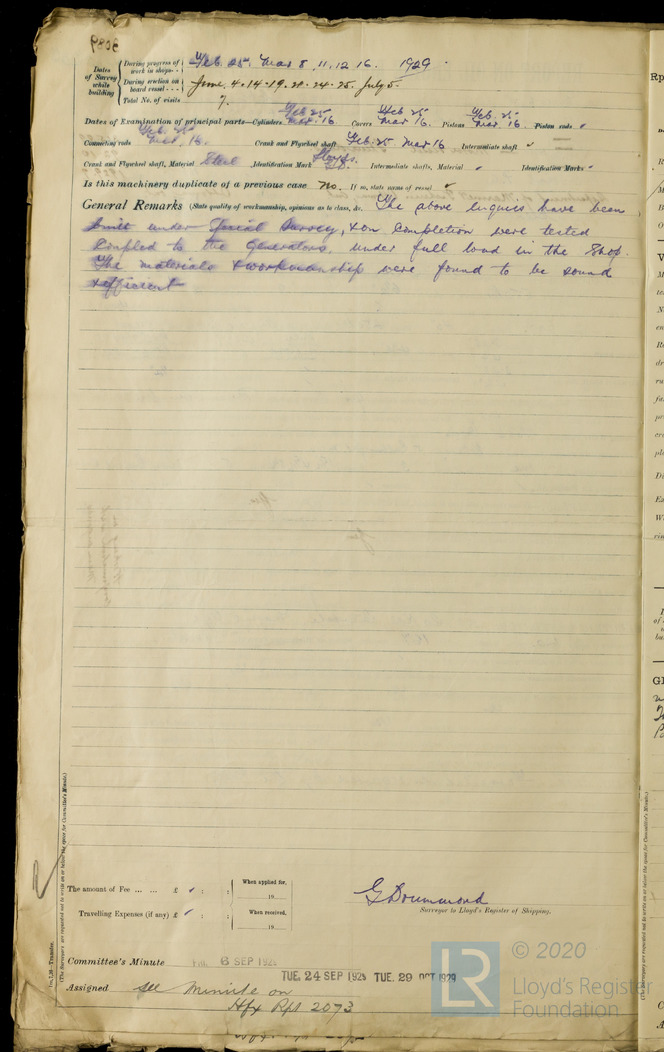 Dates of Survey while building
During progress of work in shops - - Feb. 25. Mar 8, 11, 12 16. 1929.
During erection on board vessel - - - June, 4-14-19. 21. 24. 25. July 5.
Total No. of visits 7.
Dates of Examination of principal parts—Cylinders Feb 25 Mar. 16. Covers Feb 25 Mar 16. Pistons Feb. 25 Mar 16. Piston rods ✓
Connecting rods Feb. 25 Mar. 16. Crank and Flywheel shaft Feb. 25 Mar 16 Intermediate shaft ✓
Crank and Flywheel shaft, Material Steel Identification Mark Lloyds. Intermediate shafts, Material ✓ Identification Marks ✓
Is this machinery duplicate of a previous case No. If so, state name of vessel ✓
General Remarks (State quality of workmanship, opinions as to class, &c. The above engines have been
built under Special Survey, & on completion were tested
coupled to the generators, under full load in the Shop.
The materials & workmanship were found to be sound
& efficient
The amount of Fee ... ... £ ✓ : :
When applied for,
19
Travelling Expenses (if any) £ ✓ : :
When received,
19
G Drummond
Surveyor to Lloyd's Register of Shipping.
Committee's Minute FRI. 6 SEP 1929
TUE. 24 SEP 1929 TUE. 29 OCT 1929
Assigned See Minute on
Hfx Rpt 2073
(The Surveyors are requested not to write on or below the space for Committee's Minute.)
LR
© 2020
Lloyd's Register
Foundation